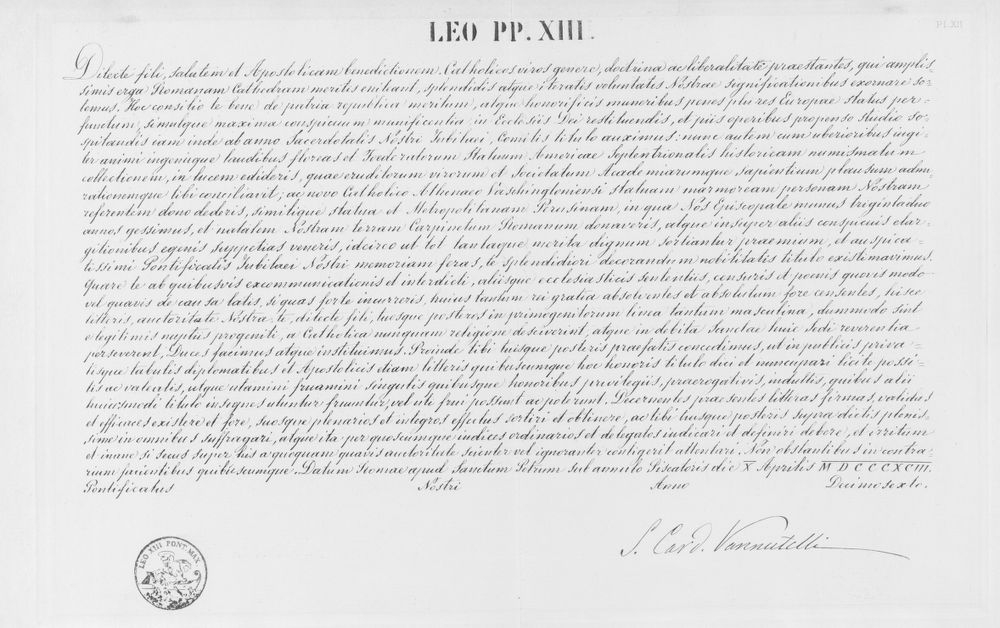 LEO PP. XIII.
Pl. XII
Dilecte fili, salutem et Apostolicam benedictionem. Catholicos viros genere, doctrina ac liberalitate praestantes, qui amplis-
simis erga Romanam Cathedram meritis eniteant, splendidis atque iteratis voluntatis Nostrae significationibus exornare so-
lemus. Hoc consilio te bene de patria republica meritum, atque honorificis muneribus penes plures Europae status per-
functum, simulque maxima conspicuum munificentia in Ecclesiis Dei restituendis, et piis operibus propenso studio so-
spitandis iam inde ab anno Sacerdotalis Nostri Jubilaei, Comitis titulo auximus: nunc autem cum uberioribus ingi-
ter animi ingeniique laudibus floreas et Foederatorum Statuum Americae Septentrionalis historicam numismatum
collectionem, in lucem edideris, quae eruditorum virorum et Societatum Academiarumque sapientium plausum admi
rationemque tibi conciliavit; ac novo Catholico Athenaeo Washingtoniensi statuam marmoream personam Nostram
referentem dono dederis, similique statua et Metropolitanam Perusinam, in qua Nos Episcopale munus triginta duo
annos gessimus, et natalem Nostram terram Carpinetum Romanum donaveris, atque insuper aliis conspicuis elar-
gitionibus egenis suppetias veneris, idcirco ut tot tantaque merita dignum sortiantur praemium, et auspica-
tissimi Pontificalis Jubilaei Nostri memoriam feras, te splendidiori decorandum nobilitatis titulo existimavimus.
Quare te ab quibusvis excommunicationis et interdicti, aliisque ecclesiasticis sententiis, censuris et poenis quovis modo
vel quavis de causa latis, si quas forte incurreris, huius tantum rei gratia absolventes et absolutum fore censentes, hisce
litteris, auctoritate Nostra te, dilecte fili, tuosque posteros in primogenitorum linea tantum masculina, dummodo sint
e legitimis nuptiis progeniti, a Catholica nunquam religione desciverint, atque in debita Sanctae huic Sedi reverentia
perseverent, Duces facimus atque instituimus. Proinde tibi tuisque posteris praefatis concedimus, ut in publicis priva-
tisque tabulis diplomatibus et Apostolicis etiam litteris quibuscumque hoc honoris titulo dici et nuncupari licite possi-
tis ac valeatis, utque utamini fruamini singulis quibusque honoribus privilegiis, praerogativis, indultis, quibus alii
huiusmodi titulo insignes utuntur fruuntur, vel uti frui possunt ac poterunt. Decernentes praesentes litteras firmas, validas
et efficaces existere et fore, suosque plenarios et integros effectus sortiri et obtinere, ac tibi tuisque posteris supradictis plenis-
sime in omnibus suffragari, atque ita per quoscumque iudices ordinarios et delegatos iudicari et definiri debere, et irritum
et inane si secus super his a quoquam quavis auctoritate scienter vel ignoranter contigerit attentari. Non obstantibus in contra-
rium facientibus quibuscumque. Datum Romae apud Sanctum Petrum sub annulo Piscatoris die X Aprilis MDCCCXCIII.
Pontificatus Nostri Anno Decimosexto.
S. Card. Vannutelli
LEO XIII PONT. MAX.